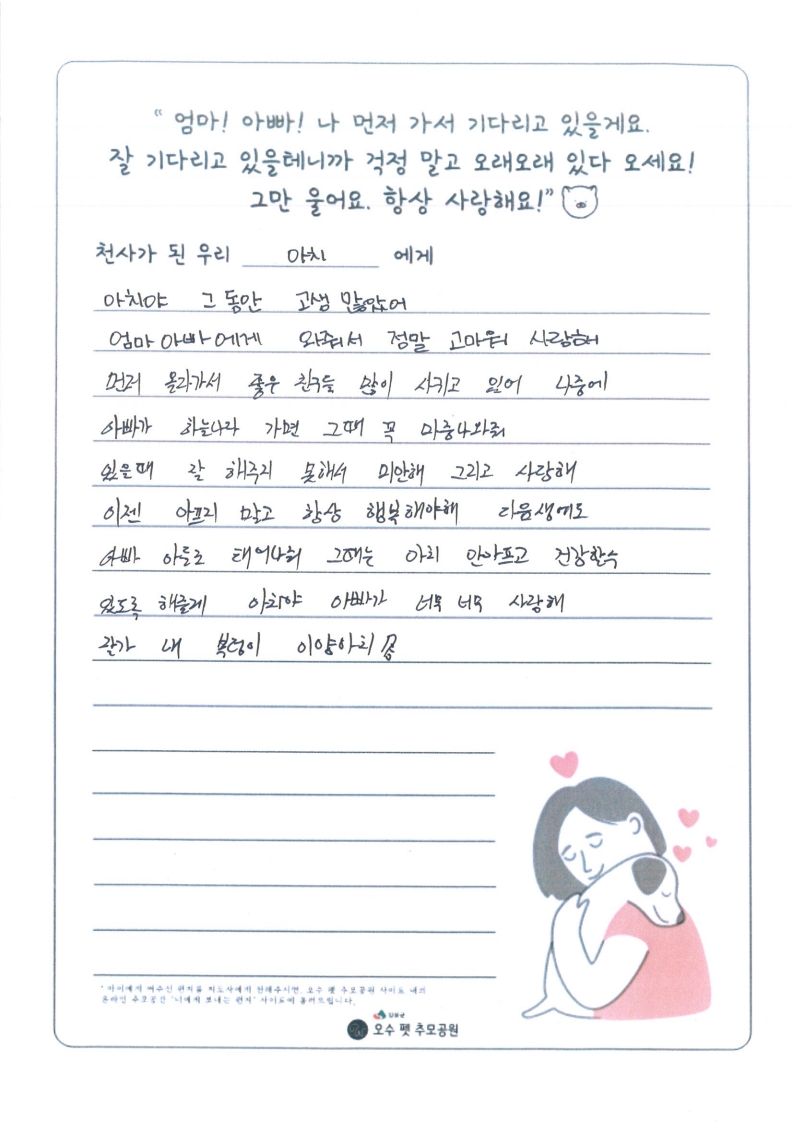 “ 엄마! 아빠! 나 먼저 가서 기다리고 있을게요.
잘 기다리고 있을테니까 걱정 말고 오래오래 있다 오세요!
그만 울어요. 항상 사랑해요!”
천사가 된 우리 아치 에게
아치야 그 동안 고생 많았어
엄마 아빠에게 와줘서 정말 고마워 사랑해
먼저 올라가서 좋은 친구들 많이 사귀고 있어 나중에
아빠가 하늘나라 가면 그때 꼭 마중나와줘
있을때 잘 해주지 못해서 미안해 그리고 사랑해
이젠 아프지 말고 항상 행복해야해 다음생에도
아빠 아들로 태어나줘 그때는 아치 안아프고 건강할수
있도록 해줄게 아치야 아빠가 너무 너무 사랑해
잘가 내 복덩이 이양아치
* 아이에게 써주신 편지를 지도사에게 전해주시면, 오수 펫 추모공원 사이트 내의
온라인 추모공간 '너에게 보내는 편지' 사이트에 올려드립니다.
임실군
오수 펫 추모공원